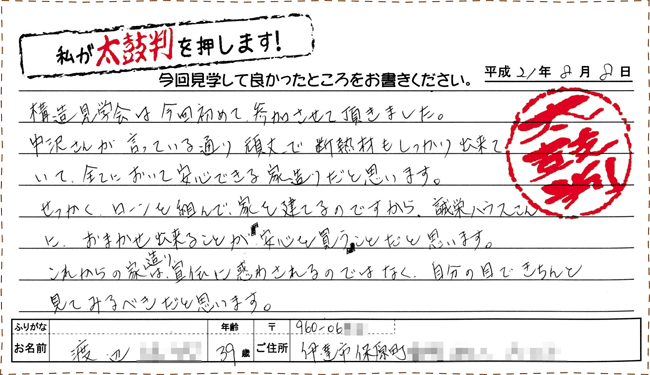 私が太鼓判を押します!
今回見学して良かったところをお書きください。 平成21年8月8日
構造見学会は今回初めて、参加させて頂きました。
中沢さんが言っている通り頑丈で断熱材もしっかり出来て
いて、全てにおいて安心できる家造りだと思います。
せっかく、ローンを組んで、家を建てるのですから、誠栄ハウスさん
に、おまかせ出来ることが安心を買うことだと思います。
これからの家造りは宣伝に惑わされるのではなく、自分の目できちんと
見てみるべきだと思います。
太鼓判
ふりがな 年齢 〒 960-06
お名前 渡辺 39歳 ご住所 伊達市保原町